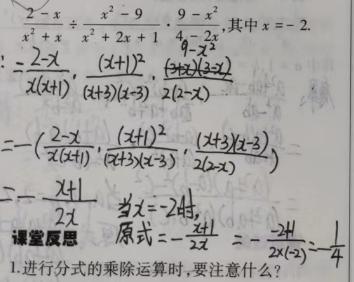 (2-x)/(x²+x) ÷ (x²-9)/(x²+2x+1) · (9-x²)/(4-2x), 其中 x=-2.
9-x²
= (2-x)/(x(x+1)) · (x+1)²/((x+3)(x-3)) · (3+x)(3-x)/(2(2-x))
=-( (2-x)/(x(x+1)) · (x+1)²/((x+3)(x-3)) · (x+3)(x-3)/(2(2-x)) )
=-(x+1)/(2x) 当x=-2时,
原式=-(x+1)/(2x) =-(-2+1)/(2×(-2)) =-1/4
课堂反思
1.进行分式的乘除运算时,要注意什么?